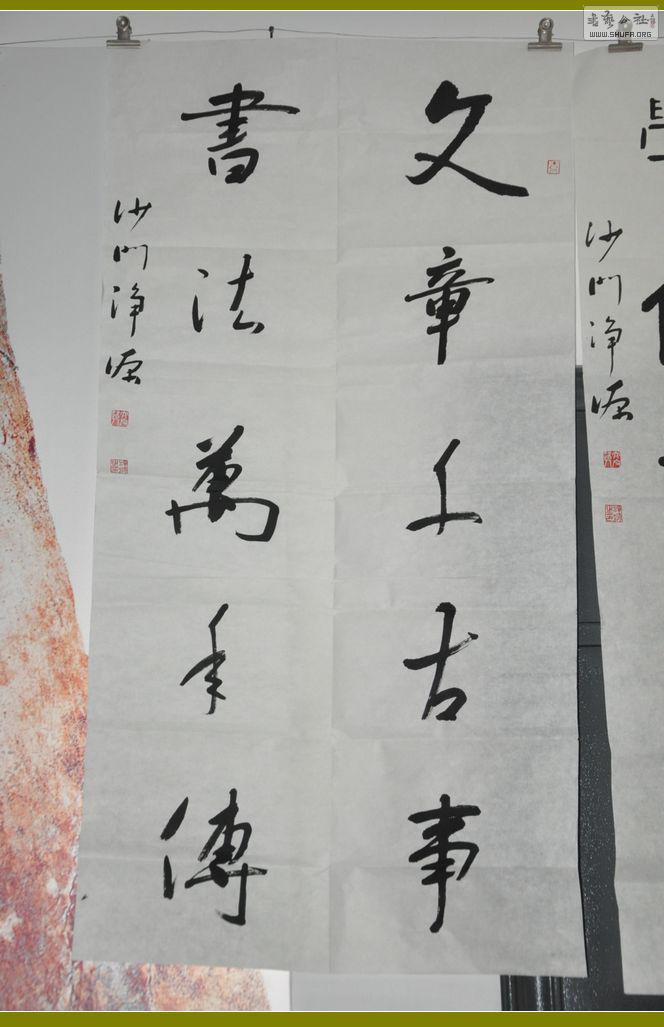 文章千古事
書法萬年傳
沙門淨源
沙門淨源
書藝公社
WWW.SHUFA.ORG